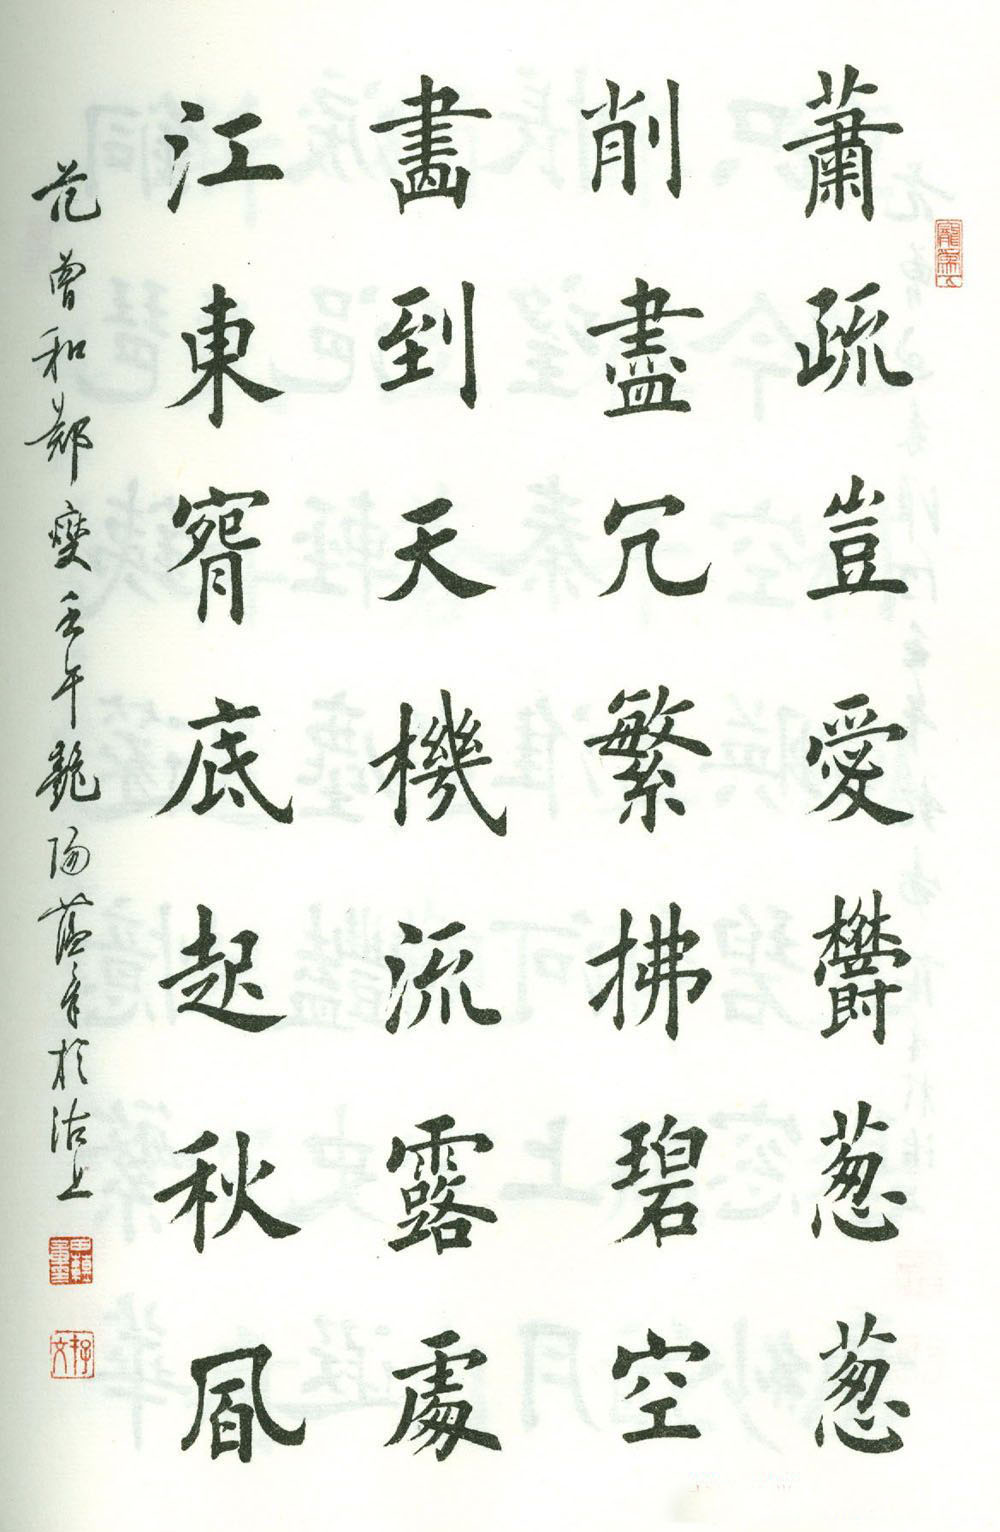 蕭疏豈愛鬱葱葱
削盡冗繁拂碧空
畫到天機流露處
江東窅底起秋風
范曾和鄭燮壬午艷陽藴章於沽上